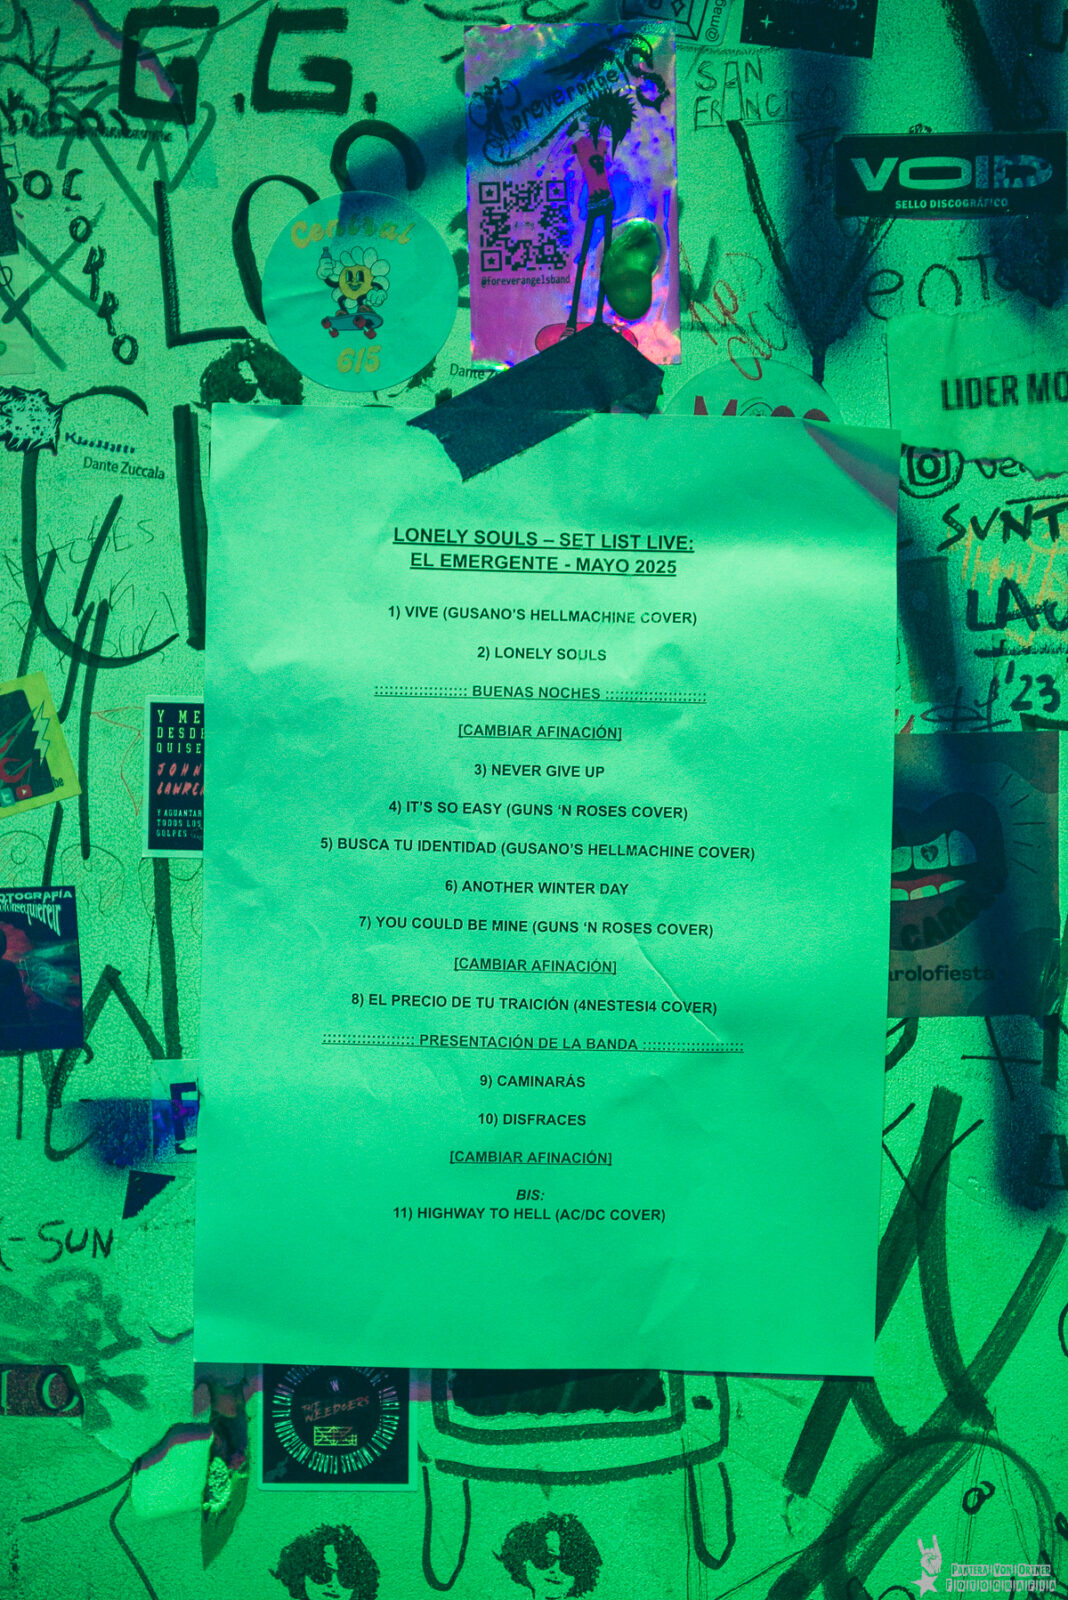 G.G.
LOS
SAN
FRANCISCO
foreverangels
@foreverangelsband
VOID
SELLO DISCOGRÁFICO
Central
615
Dante Zuccala
LIDER MO
SVNT
LAC
'23
LONELY SOULS – SET LIST LIVE:
EL EMERGENTE - MAYO 2025
1) VIVE (GUSANO'S HELLMACHINE COVER)
2) LONELY SOULS
:::::::::::::::::: BUENAS NOCHES :::::::::::::::::::
[CAMBIAR AFINACIÓN]
3) NEVER GIVE UP
4) IT'S SO EASY (GUNS 'N ROSES COVER)
5) BUSCA TU IDENTIDAD (GUSANO'S HELLMACHINE COVER)
6) ANOTHER WINTER DAY
7) YOU COULD BE MINE (GUNS 'N ROSES COVER)
[CAMBIAR AFINACIÓN]
8) EL PRECIO DE TU TRAICIÓN (4NESTESI4 COVER)
:::::::::::::::::: PRESENTACIÓN DE LA BANDA :::::::::::::::::::
9) CAMINARÁS
10) DISFRACES
[CAMBIAR AFINACIÓN]
BIS:
11) HIGHWAY TO HELL (AC/DC COVER)
Y ME
DESDE
QUISE
JOHN
LAWRE
Y AGUANTAR
TODOS LOS
GOLPES
OTOGRAFÍA
arolofiesta
-SUN
THE
WEEDGERS
PANTERA VON ORTNER
FOTOGRAFIA